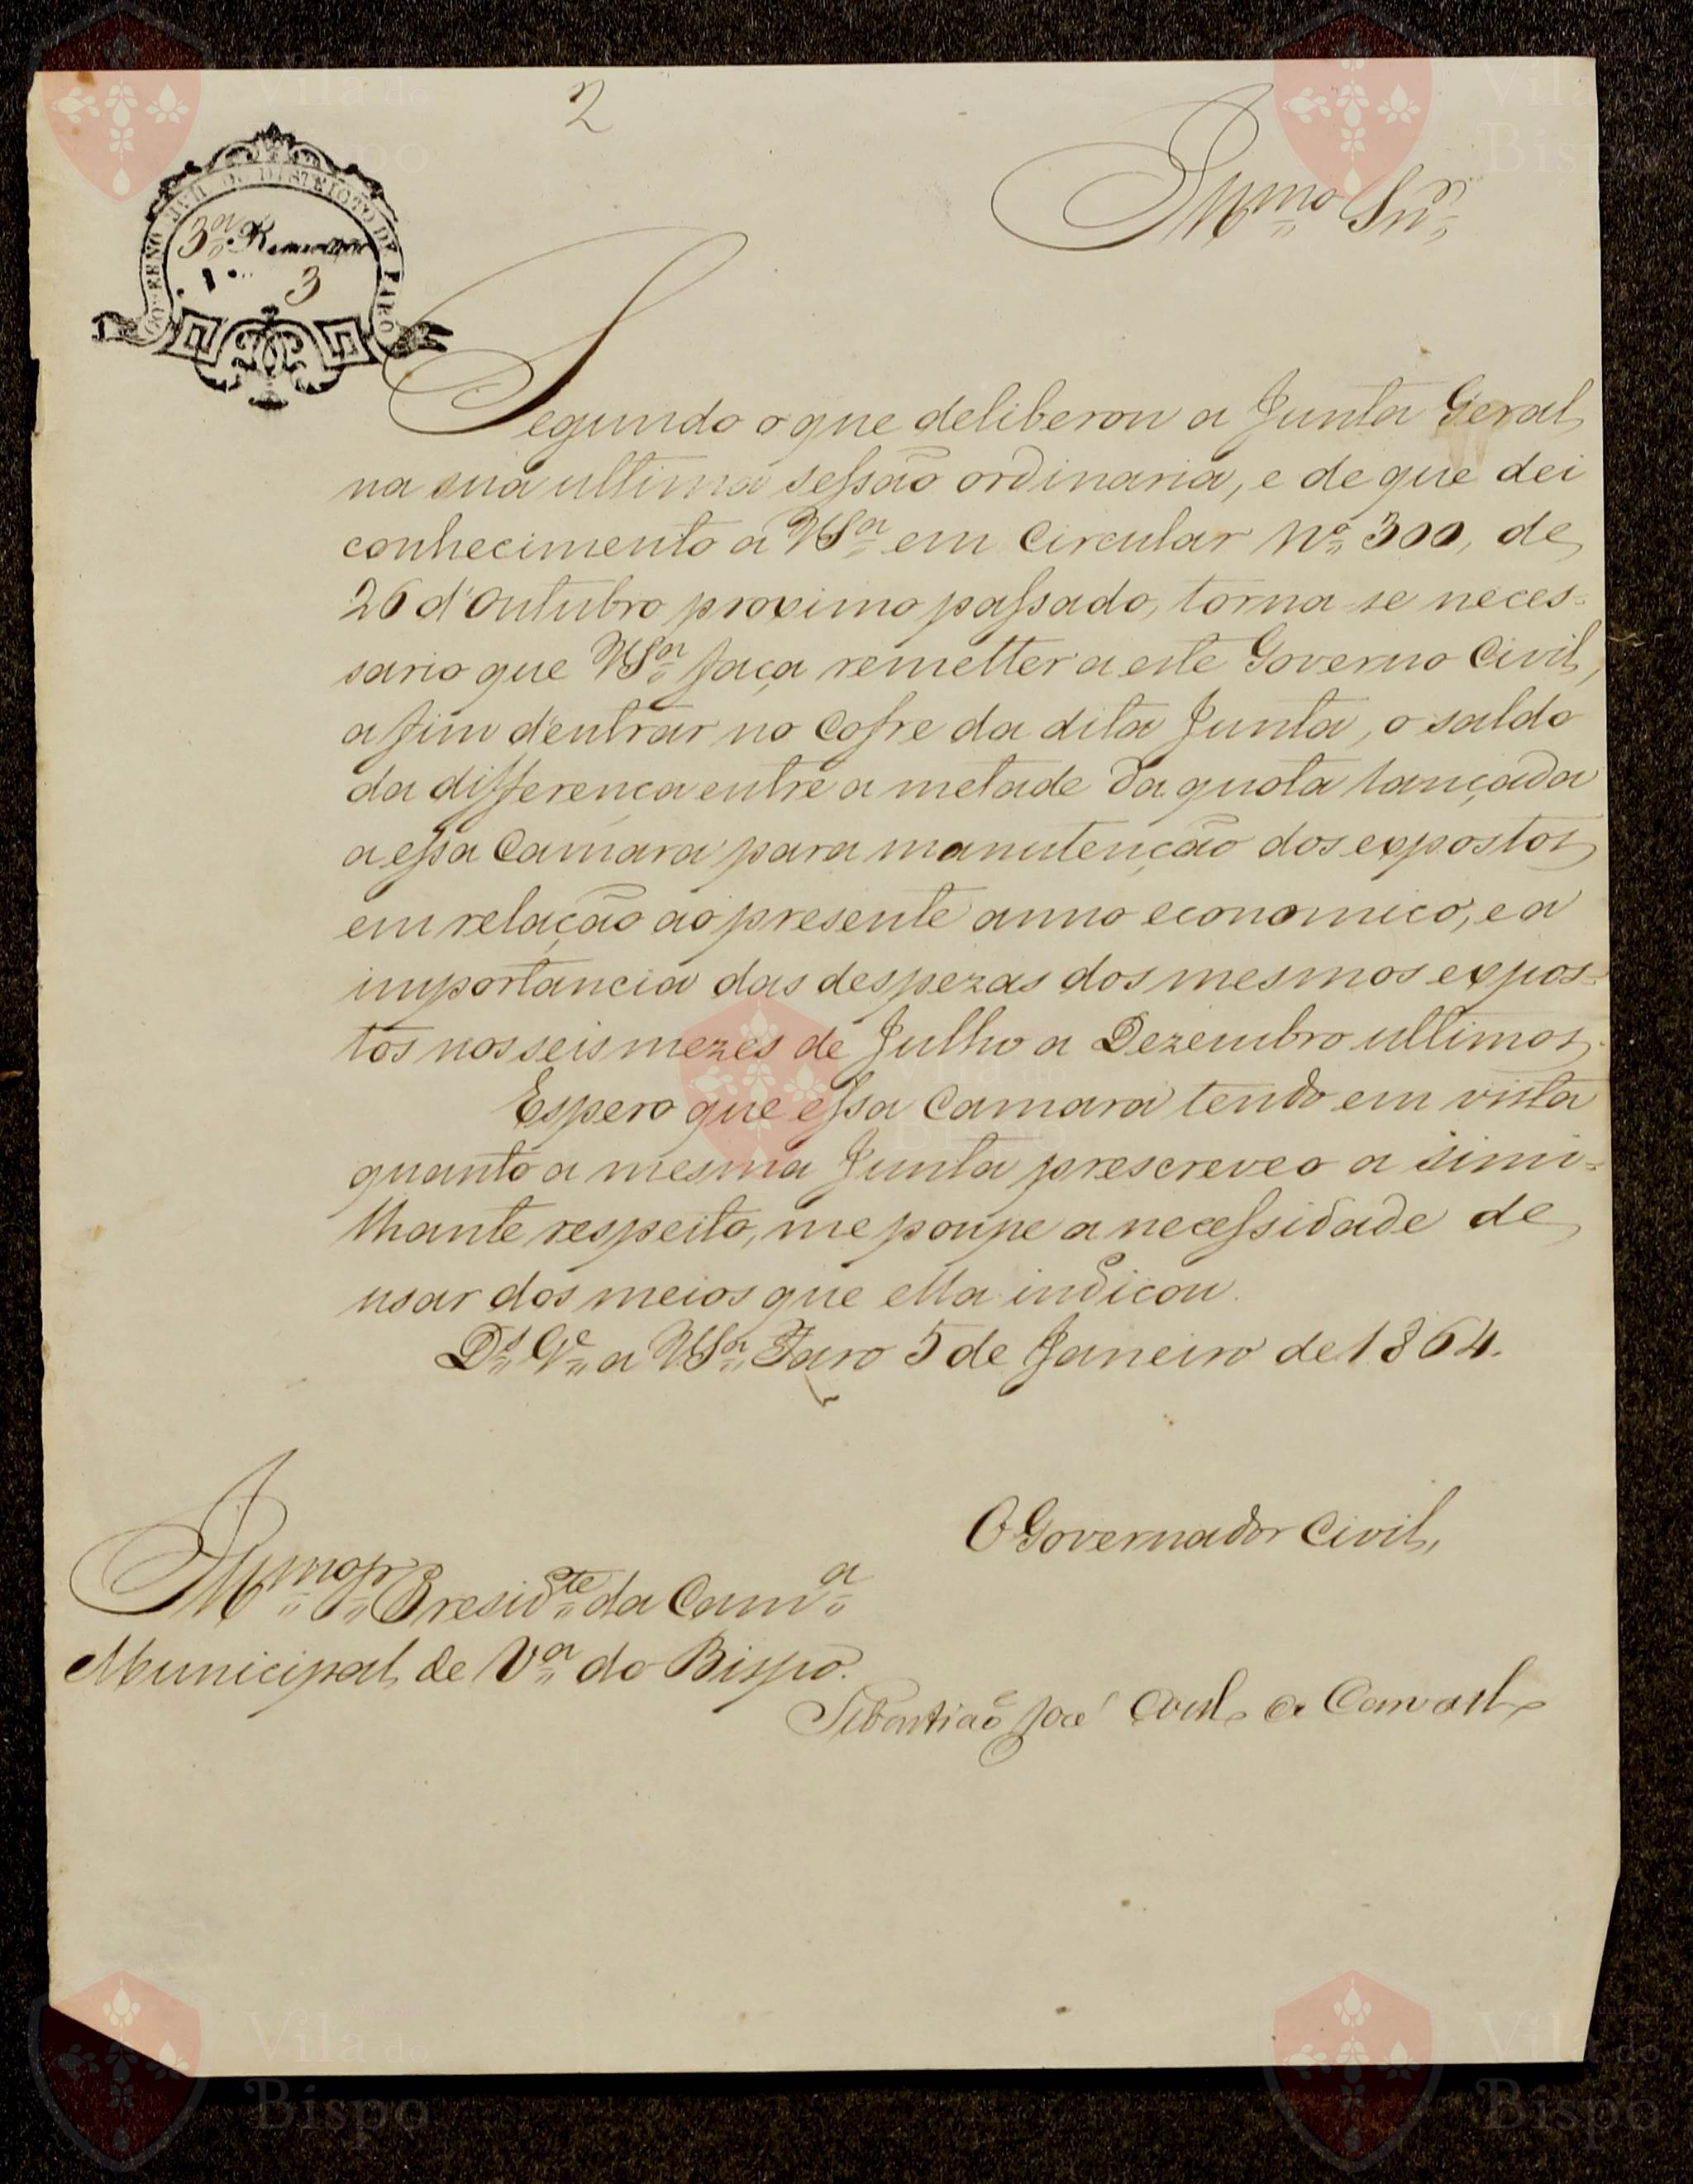 2
GOVERNO CIVIL DO DISTRICTO DE FARO
3.ª
3
Ill.mo Snr.
Segundo o que deliberou a Junta Geral
na sua ultima sessão ordinaria, e de que dei
conhecimento a VSª em Circular Nº 300, de
26 d'Outubro proximo passado, torna-se neces=
sario que VSª faça remetter a este Governo Civil,
a fim d'entrar no Cofre da dita Junta, o saldo
da differença entre a metade da quota lançada
a essa Camara para manutenção dos expostos
em relação ao presente anno economico, e a
importancia das despezas dos mesmos expos=
tos nos seis mezes de Julho a Dezembro ultimos.
Espero que essa Camara tendo em vista
quanto a mesma Junta prescreveo a simi=
lhante respeito, me poupe a necessidade de
usar dos meios que ella indicou.
D.s G.e a VSª Faro 5 de Janeiro de 1864.
O Governador Civil,
Ill.mo Sr. Presid.te da Cam.ª
Municipal de V.ª do Bispo.
Sebastião José
Vila do
Bispo